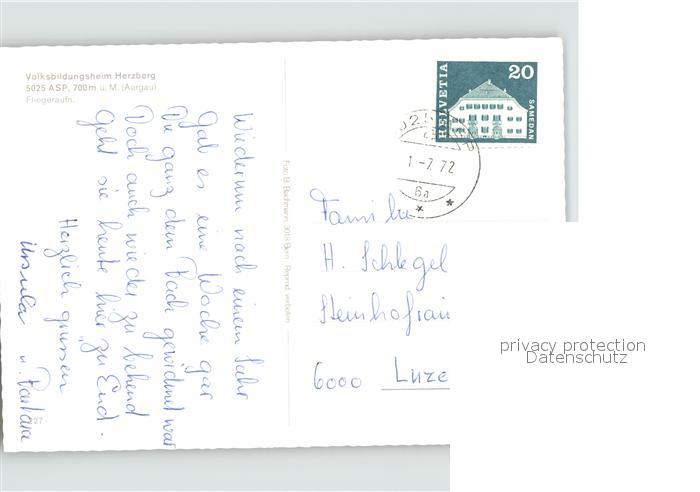 Volksbildungsheim Herzberg
5025 ASP, 700 m ü. M. (Aargau)
Fliegeraufn.
Wiederum nach einem Jahr
Gab es eine Woche gar
Die ganz dem Bach gewidmet war
Doch auch wieder zu behend
Geht sie heute hier zu End.
Herzlich grüssen
Ursula u. Barbara
227
Foto B. Bachmann, 3018 Bern Reprod. verboten
HELVETIA
20
SAMEDAN
1 -7.72
6a
Familie
H. Schlegel
Steinhofrain
6000 Luze
privacy protection
Datenschutz